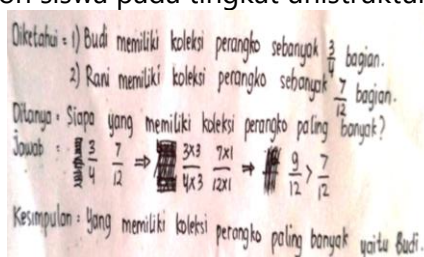 on siswa pada tingkat unistruktur
Diketahui : 1) Budi memiliki koleksi perangko sebanyak 3/4 bagian.
2) Rani memiliki koleksi perangko sebanyak 7/12 bagian.
Ditanya : Siapa yang memiliki koleksi perangko paling banyak?
Jawab : 3/4 7/12 ⇒ 3×3/4×3 7×1/12×1 ⇒ 9/12 > 7/12
Kesimpulan : Yang memiliki koleksi perangko paling banyak yaitu Budi.